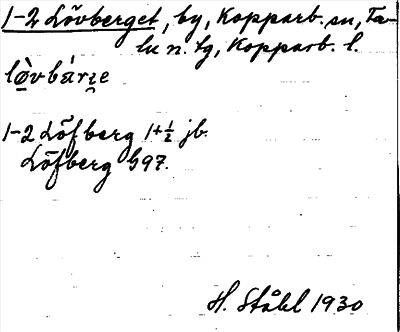 1-2 Lövberget, by, Kopparb. sn, Fa-
lu n. tg, Kopparb. l.
lø̀vbárıe
1-2 Löfberg 1+½ jb.
Löfberg G97.
H. Ståhl 1930